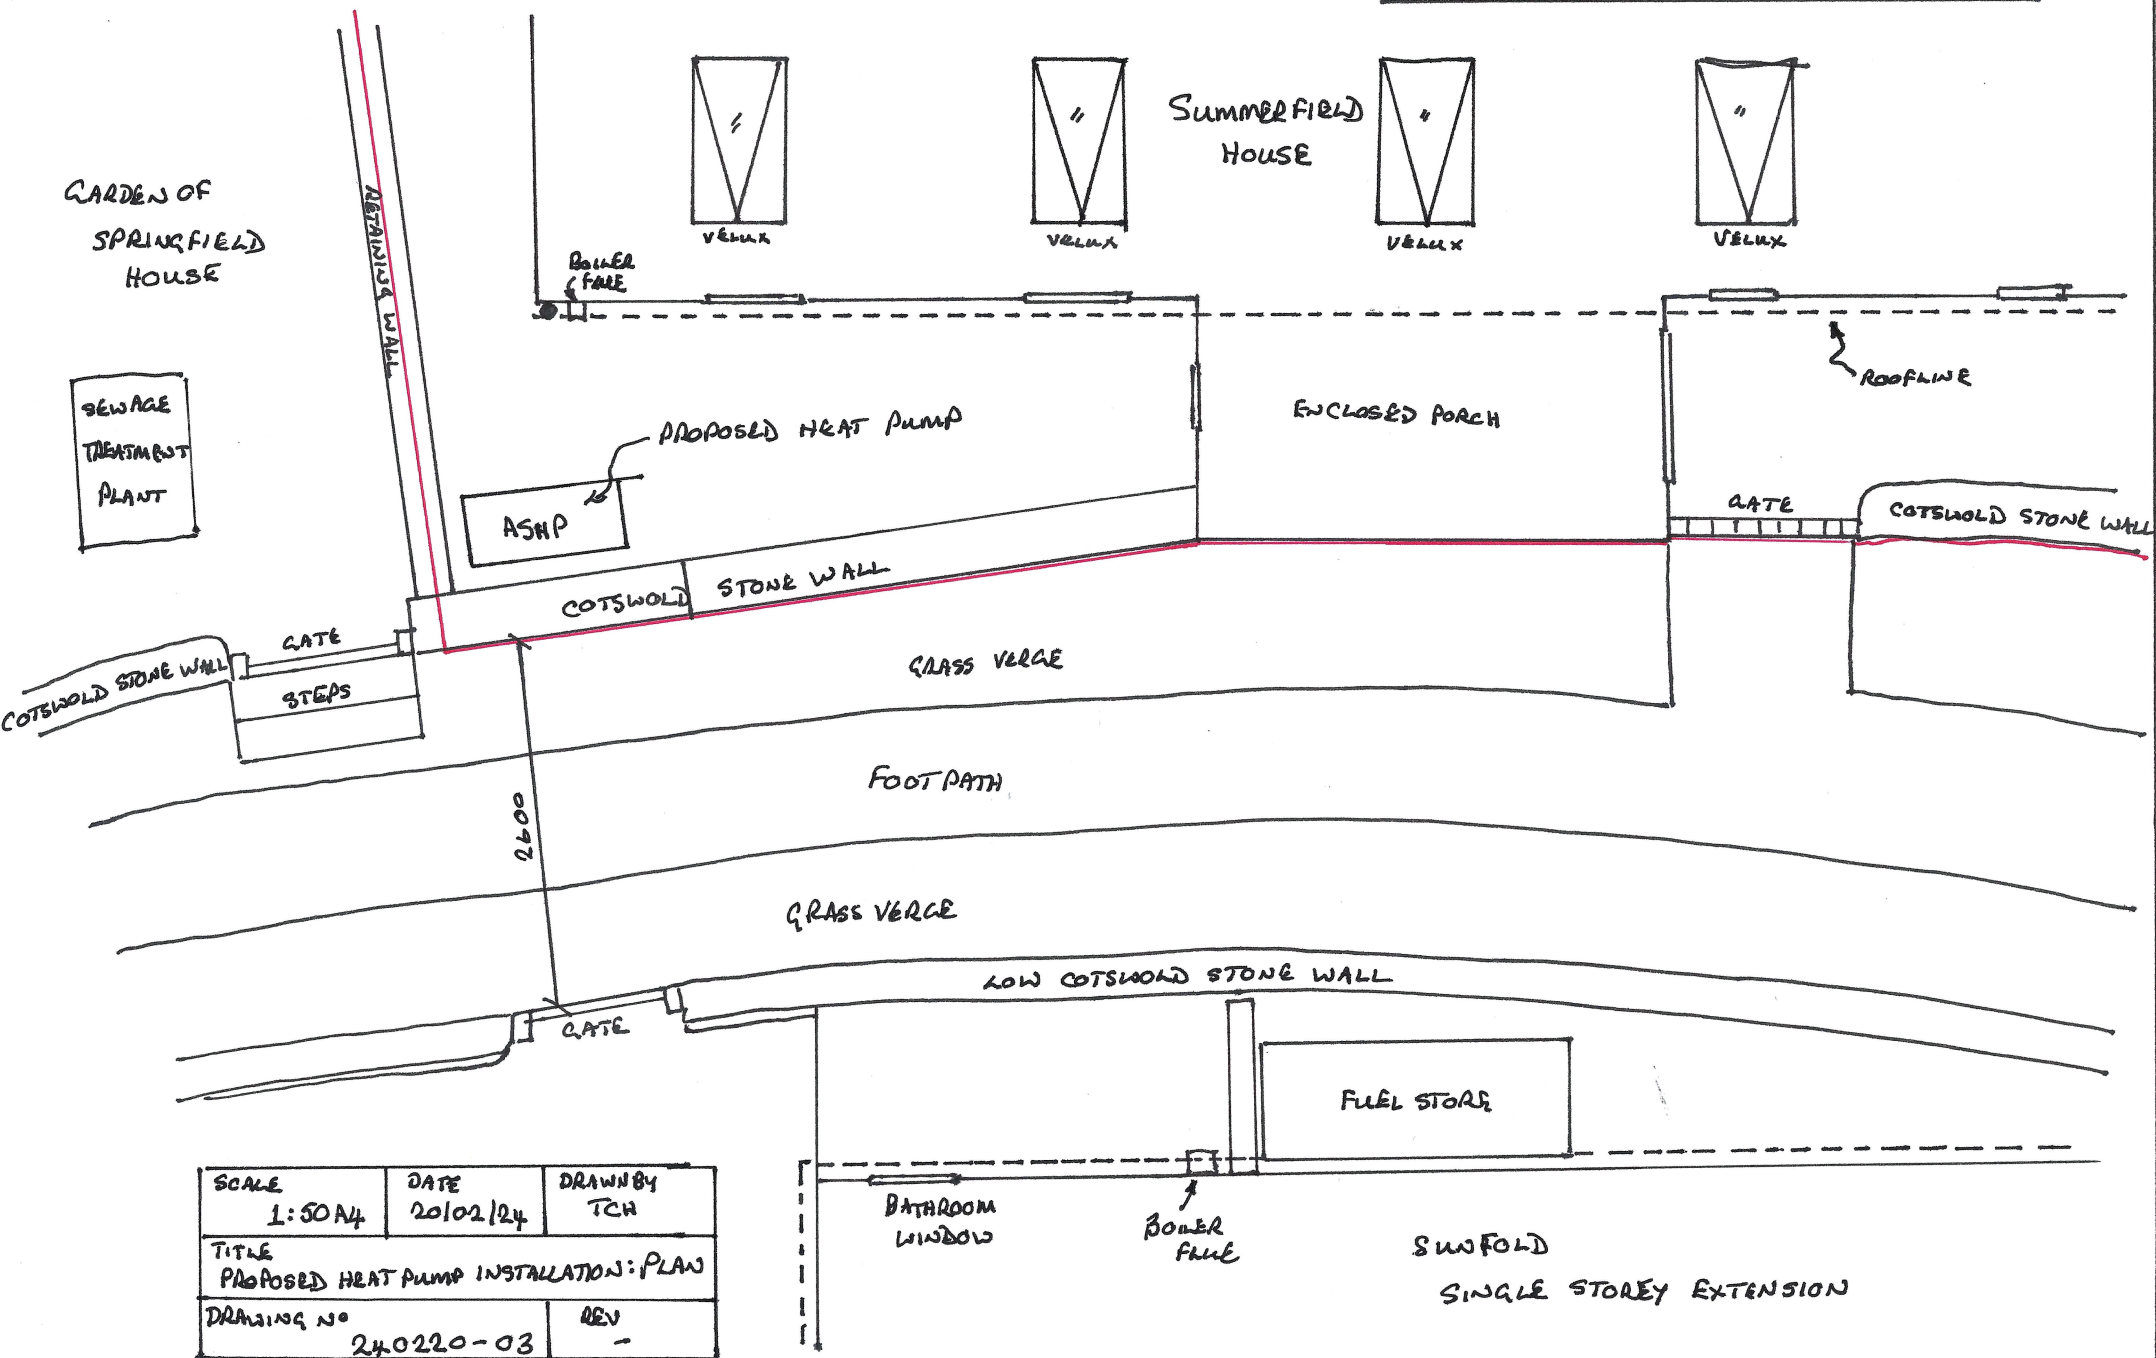 SUMMERFIELD
HOUSE
GARDEN OF
SPRINGFIELD
HOUSE
RETAINING WALL
VELUX
VELUX
VELUX
VELUX
BOILER
FLUE
ROOFLINE
SEWAGE
TREATMENT
PLANT
PROPOSED HEAT PUMP
ENCLOSED PORCH
ASHP
GATE
COTSWOLD STONE WALL
COTSWOLD STONE WALL
GATE
COTSWOLD STONE WALL
STEPS
GRASS VERGE
FOOTPATH
2600
GRASS VERGE
LOW COTSWOLD STONE WALL
GATE
FUEL STORE
BATHROOM
WINDOW
BOILER
FLUE
SUNFOLD
SINGLE STOREY EXTENSION
SCALE
1:50 A4
DATE
20/02/24
DRAWN BY
TCH
TITLE
PROPOSED HEAT PUMP INSTALLATION: PLAN
DRAWING No
240220-03
REV
-